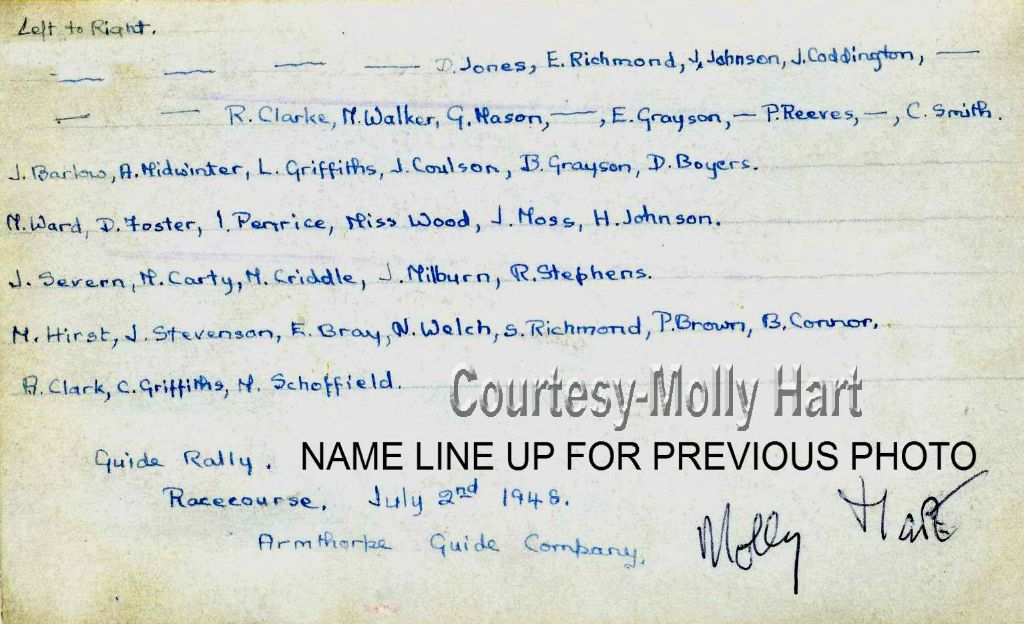 Left to Right.
— — — — D. Jones, E. Richmond, J. Johnson, J. Coddington, —
— — R. Clarke, M. Walker, G. Mason, —, E. Grayson, — P. Reeves, —, C. Smith.
J. Barlow, A. Midwinter, L. Griffiths, J. Coulson, B. Grayson, D. Boyers.
M. Ward, D. Foster, I. Penrice, Miss Wood, J. Moss, H. Johnson.
J. Severn, M. Carty, M. Criddle, J. Milburn, R. Stephens.
M. Hirst, J. Stevenson, E. Bray, N. Welch, S. Richmond, P. Brown, B. Connor.
A. Clark, C. Griffiths, M. Schoffield.
Courtesy-Molly Hart
Guide Rally. NAME LINE UP FOR PREVIOUS PHOTO
Racecourse. July 2nd 1948.
Armthorpe Guide Company.
Molly Hart